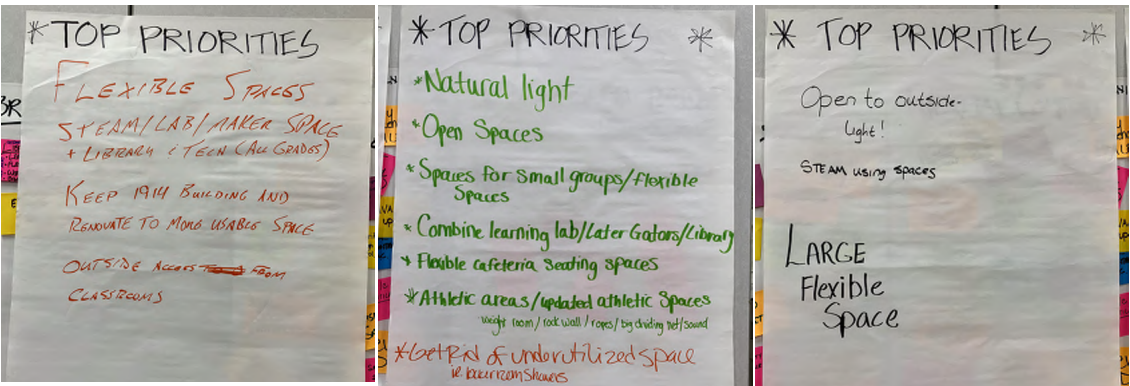 * TOP PRIORITIES
FLEXIBLE SPACES
STEAM/LAB/MAKER SPACE
+ LIBRARY & TECH (ALL GRADES)
KEEP 1914 BUILDING AND
RENOVATE TO MORE USABLE SPACE
OUTSIDE ACCESS FROM
CLASSROOMS
* TOP PRIORITIES *
* Natural light
* Open Spaces
* Spaces for small groups/flexible
Spaces
* Combine learning lab/Later Gators/Library
* Flexible cafeteria seating spaces
* Athletic areas/updated athletic Spaces
weight room / rock wall / ropes / big dividing net/sound
* Get Rid of underutilized space
ie
* TOP PRIORITIES *
Open to outside-
light!
STEAM using spaces
LARGE
Flexible
Space